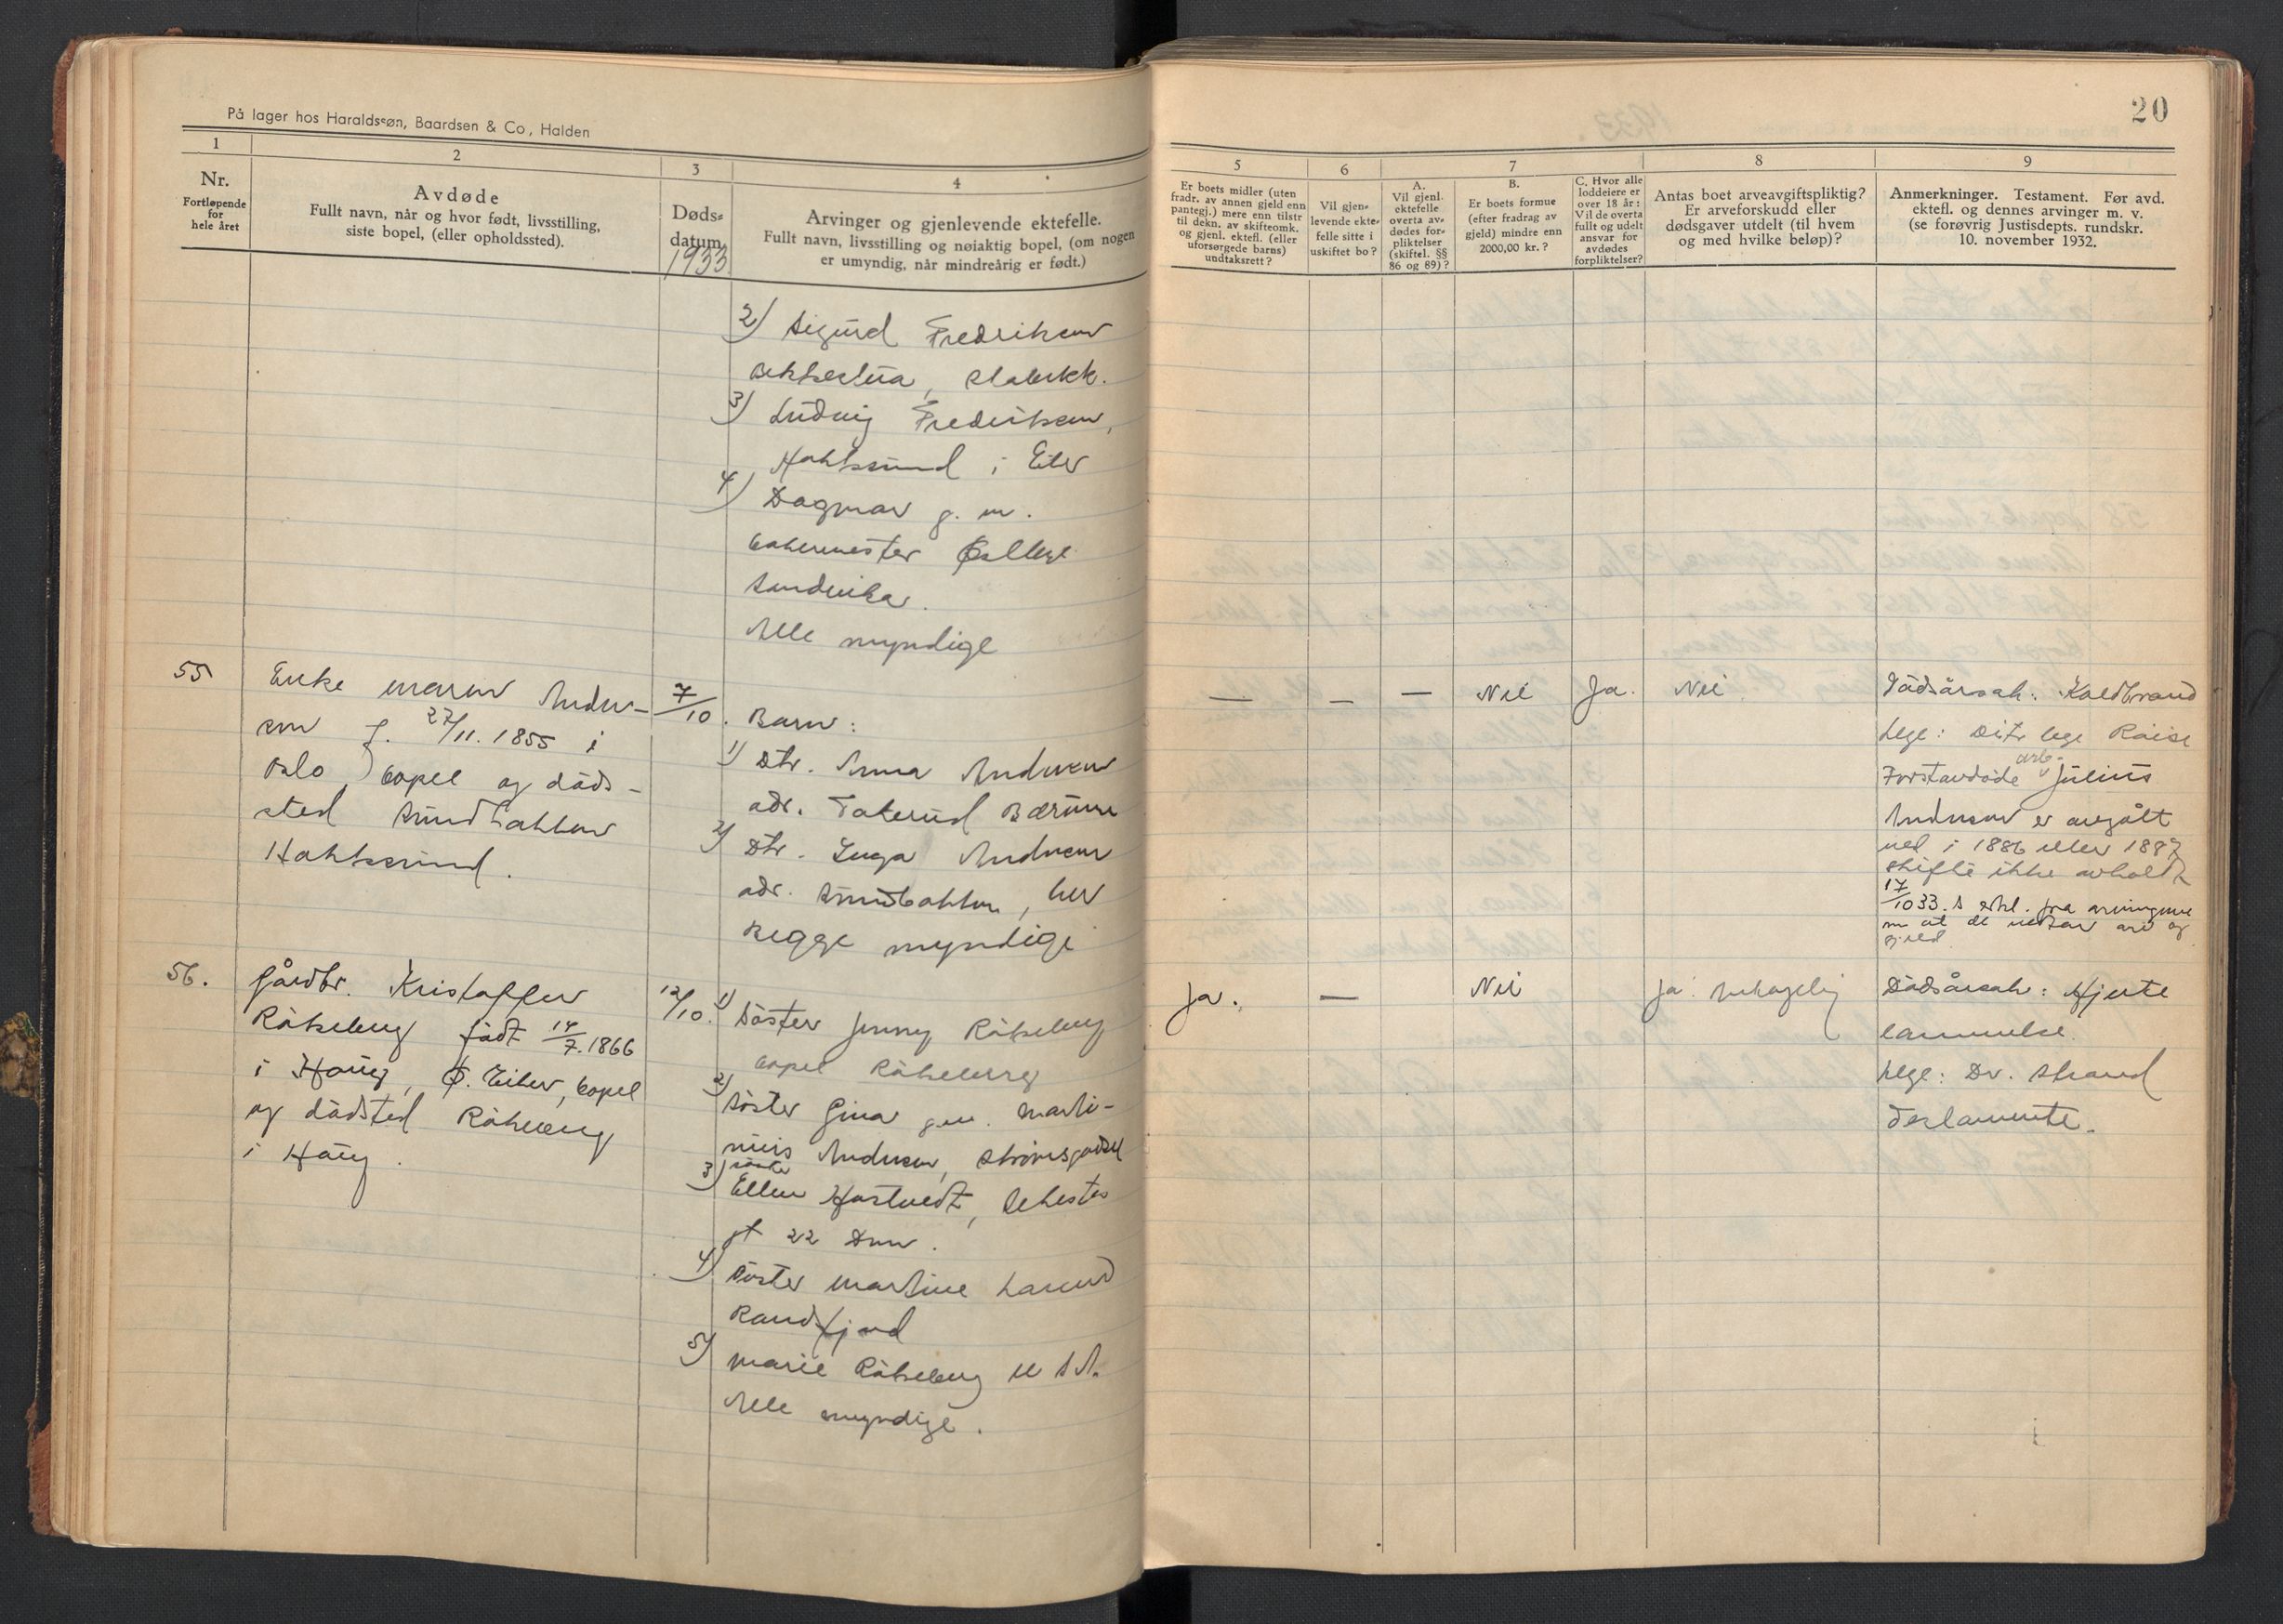 På lager hos Haraldssøn, Baardsen & Co, Halden
1
2
3
4
Nr.
Fortløpende
for
hele året
Avdøde
Fullt navn, når og hvor født, livsstilling,
siste bopel, (eller opholdssted).
Døds-
datum
1933
Arvinger og gjenlevende ektefelle.
Fullt navn, livsstilling og nøiaktig bopel, (om nogen
er umyndig, når mindreårig er født.)
2) Sigurd Fredriksen
Bekkestua, Stabekk.
3) Ludvig Fredriksen,
Hokksund i Eiker
4) Dagmar g. m.
bakermester
Sandvika.
Alle myndige
55
Enke Maren Ander-
sen f. 27/11. 1855 i
Oslo, bopel og døds-
sted Sundbakken
Hokksund.
7/10.
Barn:
1) Dtr. Anna Andersen
adr. Tokerud Bærum
2) Dtr. Inga Andersen
adr. Sundbakken, her
Begge myndige
56.
Gårdbr. Kristoffer
Råkeberg født 14/7. 1866
i Haug, Ø. Eiker, bopel
og dødsted Råkeberg
i Haug.
12/10.
1) Søster Jenny Råkeberg
bopel Råkeberg
2) Søster Gina gm. Marti-
nius Andersen, Strømsgodset
3) søster
Ellen Hostvedt,
gt 22 Dmn.
4) Søster Martine Larsen
Randsfjord
5) Marie Råkeberg U S A.
Alle myndige.
20
5
6
7
8
9
Er boets midler (uten
fradr. av annen gjeld enn
pantegj.) mere enn tilstr.
til dekn. av skifteomk.
og gjenl. ektefl. (eller
uforsørgede barns)
undtaksrett?
Vil gjen-
levende ekte-
felle sitte i
uskiftet bo?
A.
Vil gjenl.
ektefelle
overta av-
dødes for-
pliktelser
(skiftel. §§
86 og 89)?
B.
Er boets formue
(efter fradrag av
gjeld) mindre enn
2000,00 kr.?
C. Hvor alle
loddeiere er
over 18 år:
Vil de overta
fullt og udelt
ansvar for
avdødes
forpliktelser?
Antas boet arveavgiftspliktig?
Er arveforskudd eller
dødsgaver utdelt (til hvem
og med hvilke beløp)?
Anmerkninger. Testament. Før avd.
ektefl. og dennes arvinger m. v.
(se forøvrig Justisdepts. rundskr.
10. november 1932.
— — — Nei Ja. Nei
Dødsårsak: Koldbrand
Lege: Distr lege Roise
Førstavdøde arb. Julius
Andersen er avgått
ved i 1886 eller 1887
skifte ikke avholdt
17/10 33. s erkl. fra arvingene
om at de vedtar arv og
gjeld.
Ja. — Nei Ja. Antagelig
Dødsårsak: Hjerte
lammelse.
Lege: Dr. Strand
Testamente.